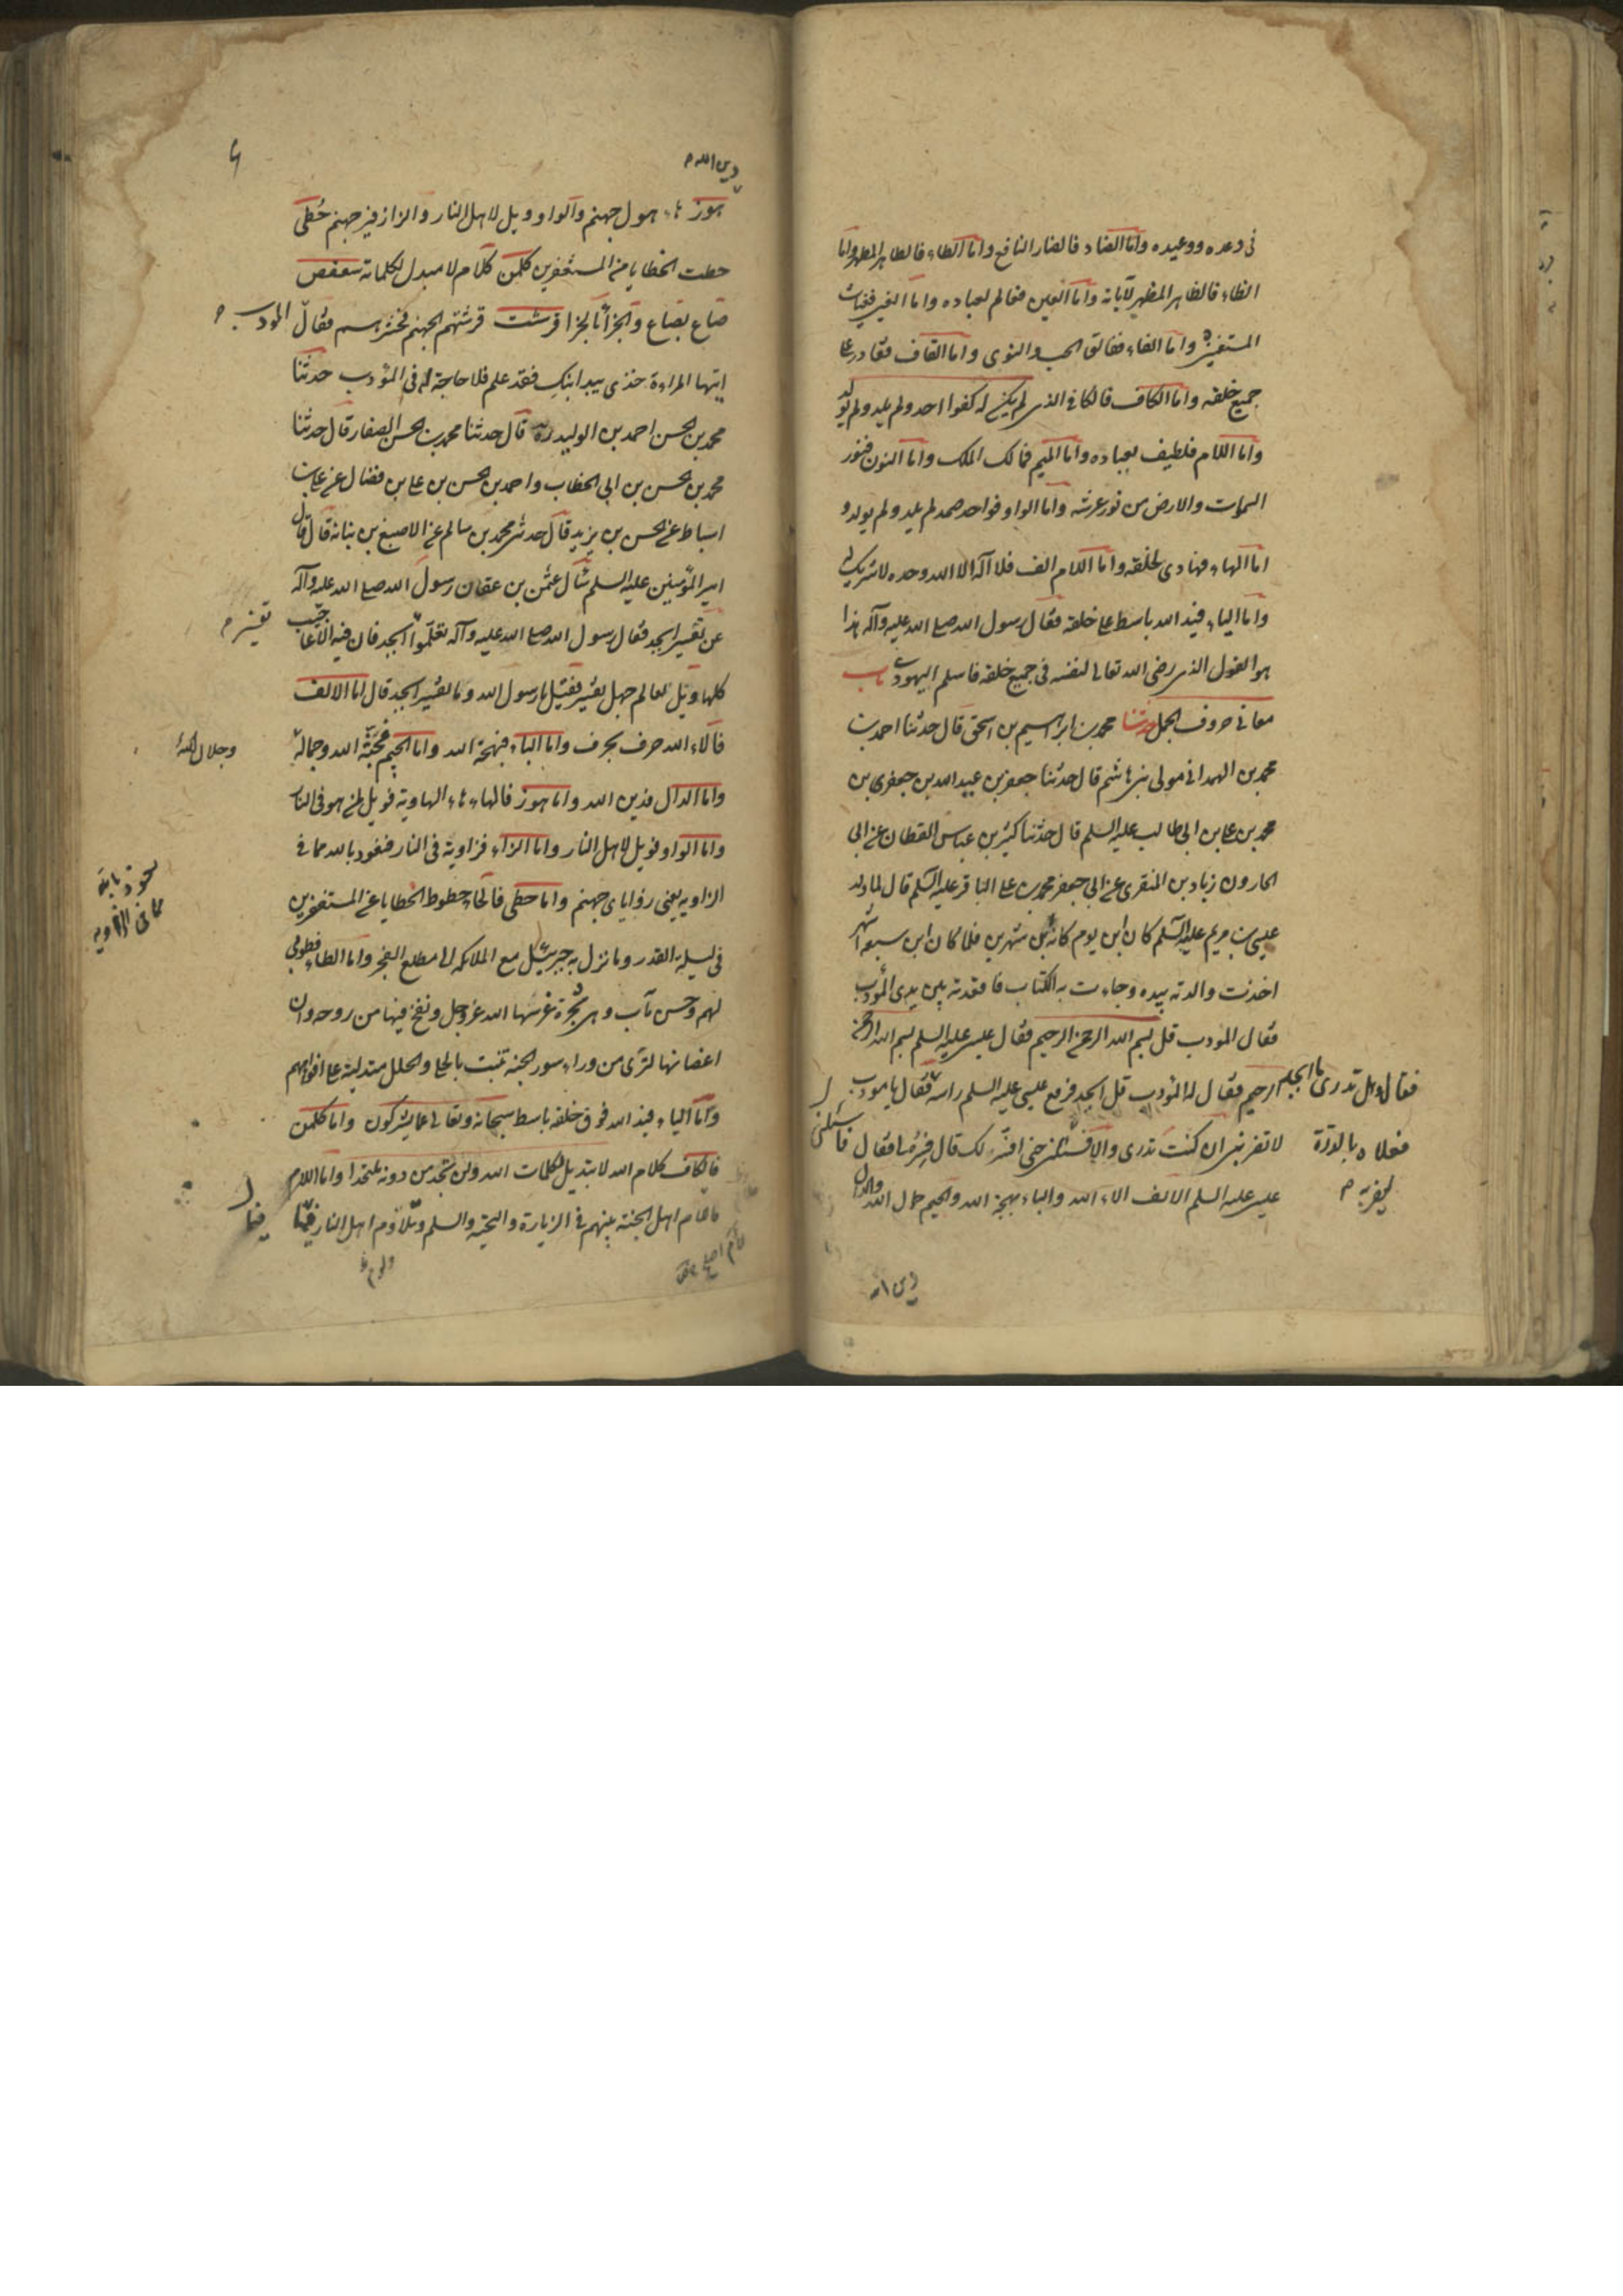 فى وعده ووعيده واما الضاد فالضار النافع واما الطاء فالطاهر المطهر واما
الظاء فالظاهر المظهر لآياته واما العين فعالم لعباده واما الغين فغياث
المستغيثين واما الفاء ففالق الحب والنوى واما القاف فقادر على
جميع خلقه واما الكاف فالكافى الذى لم يكن له كفوا احد ولم يلد ولم يولد
واما اللام فلطيف بعباده واما الميم فمالك الملك واما النون فنور
السموات والارض من نور عرشه واما الواو فواحد صمد لم يلد ولم يولد و
اما الهاء فهادى لخلقه واما اللام الف فلا اله الا الله وحده لا شريك له
واما الياء فيد الله باسط على خلقه فقال رسول الله صلى الله عليه وآله هذا
هو القول الذى رضى الله تعالى لنفسه فى جميع خلقه فاسلم اليهودى باب
معانى حروف الجمل حدثنا محمد بن ابراهيم بن اسحق قال حدثنا احمد بن
محمد بن الهمدانى مولى بنى هاشم قال حدثنا جعفر بن عبد الله بن جعفر بن
محمد بن على بن ابى طالب عليه السلم قال حدثنا كثير بن عباس القطان عن ابى
الجارود زياد بن المنقرى عن ابى جعفر محمد بن على الباقر عليه السلم قال لما ولد
عيسى بن مريم عليه السلم كان ابن يوم كانه ابن شهرين فلما كان ابن سبعة اشهر
اخذت والدته بيده وجاءت به الكتاب فاقعدته بين يدى المؤدب
فقال المودب قل بسم الله الرحمن الرحيم فقال عيسى عليه السلم بسم الله الرحمن
الرحيم فقال له المؤدب قل ابجد فرفع عيسى عليه السلم راسه فقال يا مودب
فقال وهل تدرى ما ابجد
لا تضربنى ان كنت تدرى والا فسئلنى حتى افسر لك قال فسره لى فقال
فعلاه بالدرة
ليضربه م
فاسئلنى
عيسى عليه السلم الالف الاء الله والباء بهجة الله والجيم جمال الله والدال
دين الله
دين الله م
هوز هاء هول جهنم والواو ويل لاهل النار والزا زفير جهنم حطى
حطت الخطايا من المستغفرين كلمن كلام لا مبدل لكلماته سعفص
صاع بصاع والجزا بالجزا قرشت قرشتهم الجهنم فحشرهم فقال المودب م
ايتها المراءة خذى بيد ابنك فقد علم فلا حاجة له فى المؤدب حدثنا
محمد بن الحسن احمد بن الوليد ره قال حدثنا محمد بن الحسن الصفار قال حدثنا
محمد بن الحسن بن ابى الخطاب واحمد بن الحسن بن على بن فضال عن على بن
اسباط عن الحسن بن يزيد قال حدثنى محمد بن سالم عن الاصبغ بن نباتة قال قال
امير المؤمنين عليه السلم سأل عثمن بن عفان رسول الله صلى الله عليه وآله
عن تفسير ابجد فقال رسول الله صلى الله عليه وآله تعلموا ابجد فان فيه الاعاجيب
تفسير م
كلها ويل لعالم جهل تفسيره فقيل يا رسول الله وما تفسير ابجد قال اما الالف
فآلاء الله حرف بحرف واما الباء فبهجة الله واما الجيم فجنة الله وجماله
وجلال الله
واما الدال فدين الله واما هوز فالهاء هاء الهاوية فويل لمن هو فى النار
واما الواو فويل لاهل النار واما الزاء فزاوية فى النار فنعوذ بالله مما فى
نعوذ بالله
مما فى الزاويه
الزاويه يعنى زوايا جهنم واما حطى فالحاء حطوط الخطايا عن المستغفرين
فى ليلة القدر وما نزل به جبرئيل مع الملائكه الى مطلع الفجر واما الطاء فطوبى
لهم وحسن مآب وهى شجرة غرسها الله عز وجل ونفخ فيها من روحه وان
اغصانها لترى من وراء سور الجنة تنبت بالحلى والحلل متدلية على افواههم
واما الياء فيد الله فوق خلقه باسط سبحانه وتعالى عما يشركون واما كلمن
فالكاف كلام الله لا تبديل لكلمات الله ولن تجد من دونه ملتحدا واما اللام
فالمام اهل الجنة بينهم فى الزيارة والتحية والسلم وتلاؤم اهل النار فيما